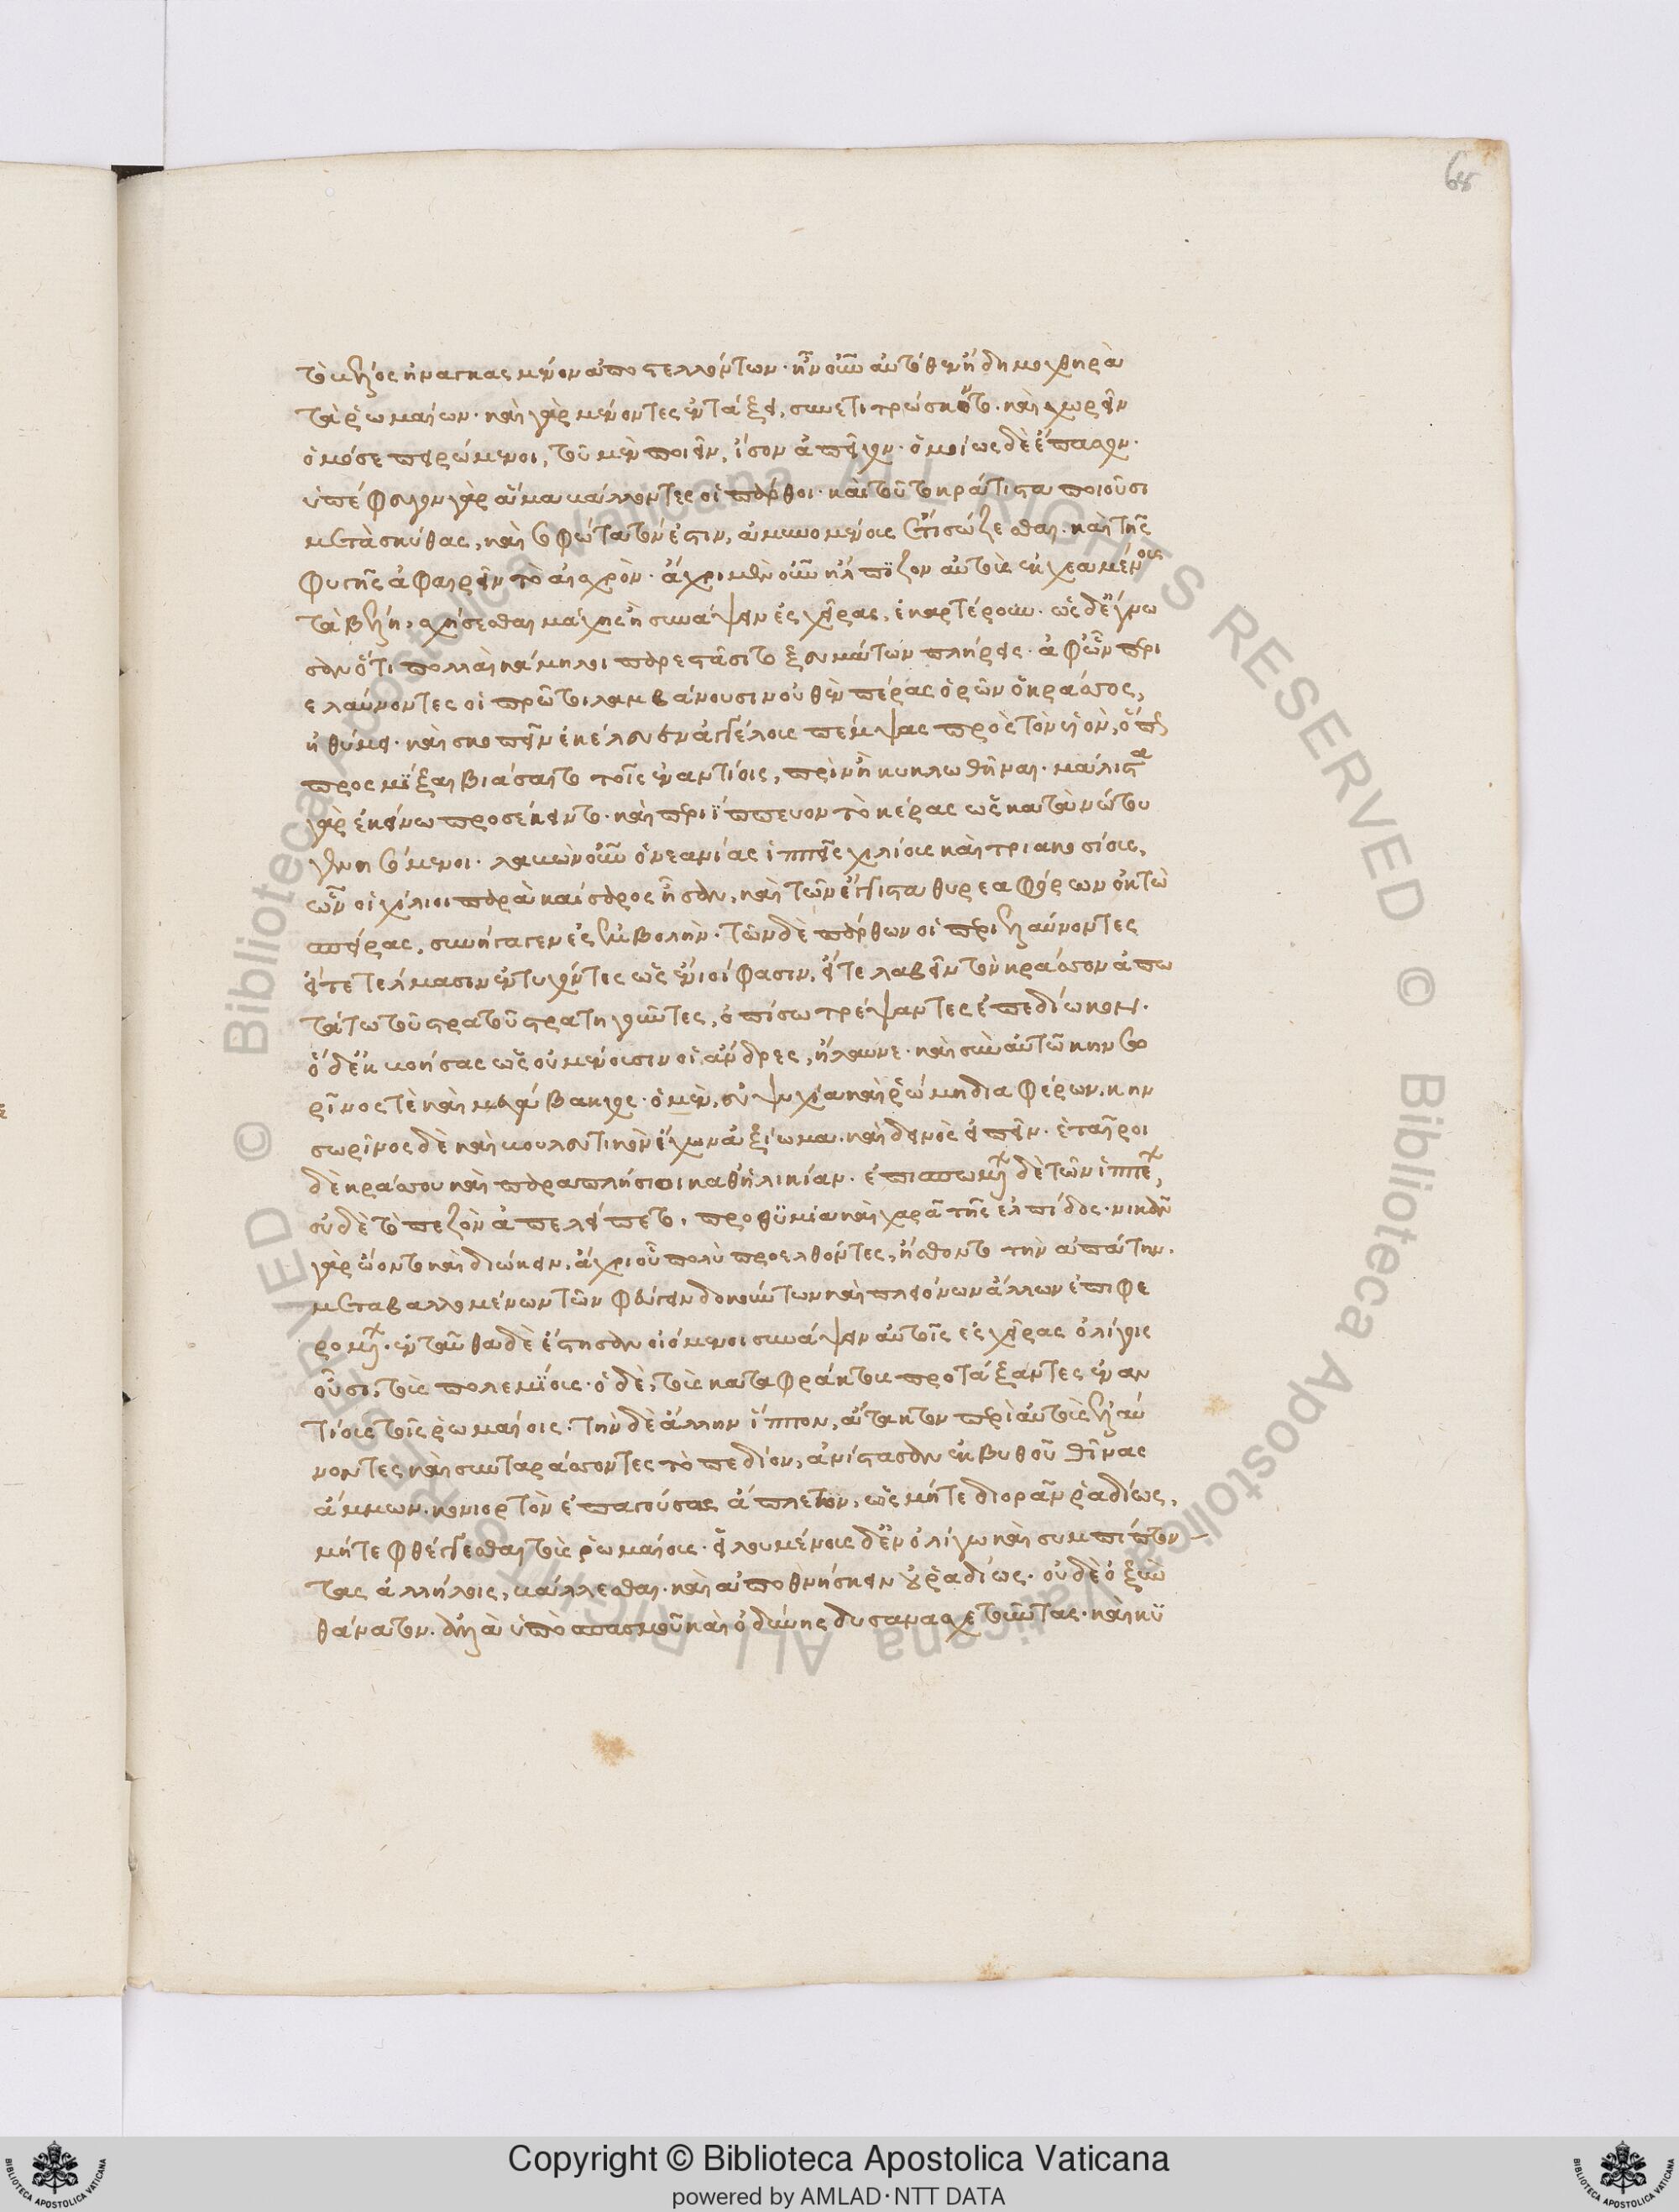 68
τὸ βέλος ἠναγκασμένον ἀποστελλόντων. ἦν οὖν αὐτόθεν ἤδη μοχθηρὰ
τὰ ῥωμαίων. καὶ γὰρ μένοντες ἐν τάξει, συνετιτρώσκοντο. καὶ χωρεῖν
ὁμόσε πειρώμενοι, τοῦ μὲν ποιεῖν, ἴσον ἀπεῖχον. ὁμοίως δὲ ἔπασχον.
ὑπέφευγον γὰρ ἅμα βάλλοντες οἱ πάρθοι. καὶ τοῦτο κράτιστα ποιοῦσι
μετὰ σκύθας, καὶ σοφώτατόν ἐστιν, ἀμυνομένοις ἔτι σώζεσθαι. καὶ τῆς
φυγῆς ἀφαιρεῖν τὸ αἰσχρόν. ἄχρι μὲν οὖν ἤλπιζον αὐτοὺς ἐκχεαμένους
τὰ βέλη, σχήσεσθαι μάχης ἢ συνάψειν ἐς χεῖρας, ἐκαρτέρουν. ὡς δ' ἔγνω
σαν ὅτι πολλαὶ κάμηλοι παρεστᾶσι τοξευμάτων πλήρεις. ἀφ' ὧν περι
ελαύνοντες οἱ πρῶτοι λαμβάνουσιν οὐθὲν πέρας ὁρῶν ὁ κράσσος,
ἠθύμει. καὶ σκοπεῖν ἐκέλευεν ἀγγέλους πέμψας πρὸς τὸν υἱὸν, ὅπως
προσμίξαι βιάσαιτο τοῖς ἐναντίοις, πρὶν ἢ κυκλωθῆναι. μάλιστα
γὰρ ἐκείνῳ προσέκειντο. καὶ περιίππευον τὸ κέρας ὡς κατὰ νώτου
γενησόμενοι. λαβὼν οὖν ὁ νεανίας ἱππεῖς χιλίους καὶ τριακοσίους,
ὧν οἱ χίλιοι παρὰ καίσαρος ἦσαν, καὶ τῶν ἔγγιστα θυρεαφόρων ὀκτὼ
σπείρας, συνήγαγεν εἰς ἐμβολήν. τῶν δὲ πάρθων οἱ περιελαύνοντες
εἴτε τέλμασιν ἐντυχόντες ὡς ἔνιοί φασιν, εἴτε λαβεῖν τὸν κράσσον ἀπω
τάτω τοῦ στρατοῦ στρατηγοῦντες, ὀπίσω τρέψαντες ἐπεδίωκον.
ὁ δ' ἐκβοήσας ὡς οὐ μένουσιν οἱ ἄνδρες, ἤλαυνε. καὶ σὺν αὐτῷ κηνσω
ρῖνός τε καὶ μεγάβακχος. ὁ μὲν, εὐψυχίᾳ καὶ ῥώμῃ διαφέρων. κην
σωρῖνος δὲ καὶ βουλευτικὸν ἔχων ἀξίωμα. καὶ δεινὸς εἰπεῖν. ἑταῖροι
δὲ κράσσου καὶ παραπλήσιοι καθ' ἡλικίαν. ἐπισπωμένων δὲ τῶν ἱππέων,
οὐδὲ τὸ πεζὸν ἀπελείπετο. προθυμίᾳ καὶ χαρᾷ τῆς ἐλπίδος. νικᾶν
γὰρ ᾤοντο καὶ διώκειν. ἄχρι οὗ πολὺ προελθόντες, ᾔσθοντο τὴν ἀπάτην.
μεταβαλλομένων τῶν φεύγειν δοκούντων καὶ πλειόνων ἄλλων ἐπιφε
ρομένων. ἐνταῦθα δὲ ἔστησαν οἰόμενοι συνάψειν αὐτοῖς ἐς χεῖρας ὀλίγοις
οὖσι, τοὺς πολεμίους. οἱ δὲ, τοὺς καταφράκτους προτάξαντες ἐναν
τίους τοῖς ῥωμαίοις. τὴν δὲ ἄλλην ἵππον, ἄτακτον περὶ αὐτοὺς ἐλαύ
νοντες καὶ συνταράσσοντες τὸ πεδίον, ἀνίστασαν ἐκ βυθοῦ θῖνας
ἄμμων. κονιορτὸν ἐπαγούσας ἄπλετον, ὡς μήτε διορᾶν ῥᾳδίως,
μήτε φθέγγεσθαι τοὺς ῥωμαίους. εἱλουμένους δ' ἐν ὀλίγῳ καὶ συμπίπτον-
τας ἀλλήλοις, βάλλεσθαι. καὶ ἀποθνήσκειν οὐ ῥᾳδίως. οὐδὲ ὀξὺν
θάνατον. ἀλλὰ ὑπὸ σπασμοῦ καὶ ὀδύνης δυσανασχετοῦντας. καὶ κυ
Copyright © Biblioteca Apostolica Vaticana
powered by AMLAD·NTT DATA